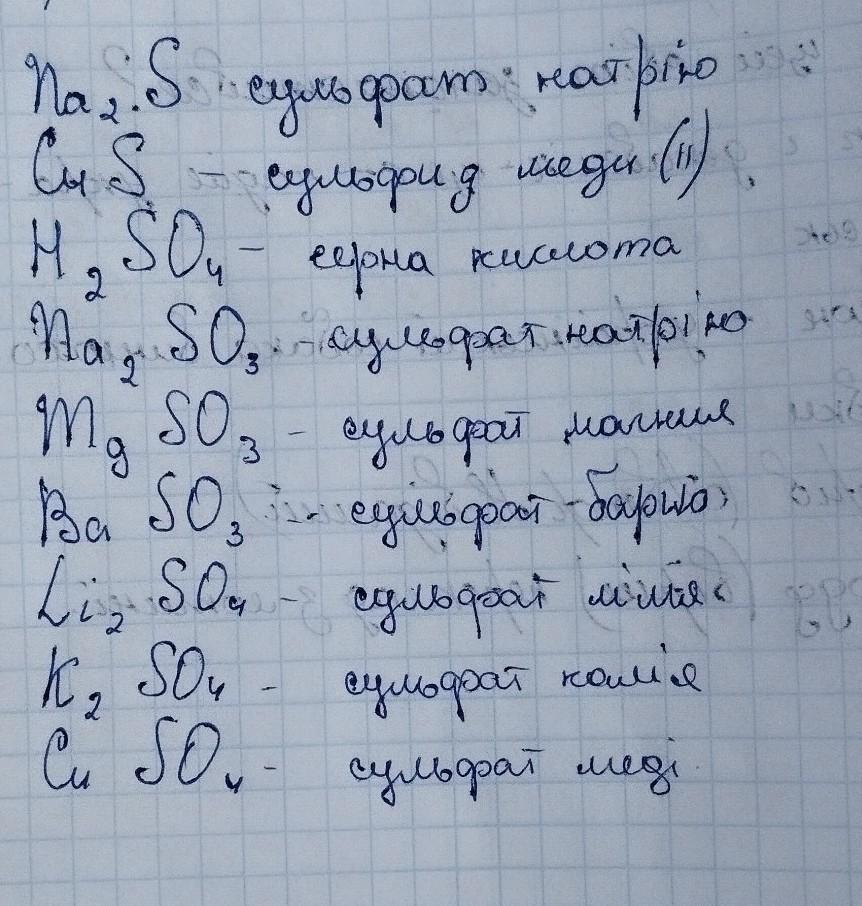 Na₂S сульфат натрію
CuS – сульфид меди (II)
H₂SO₄ – серна кислота
Na₂SO₃ – сульфат натрію
MgSO₃ – сульфат магния
BaSO₃ – сульфат барію
Li₂SO₄ – сульфат літія
K₂SO₄ – сульфат калія
CuSO₄ – сульфат меді